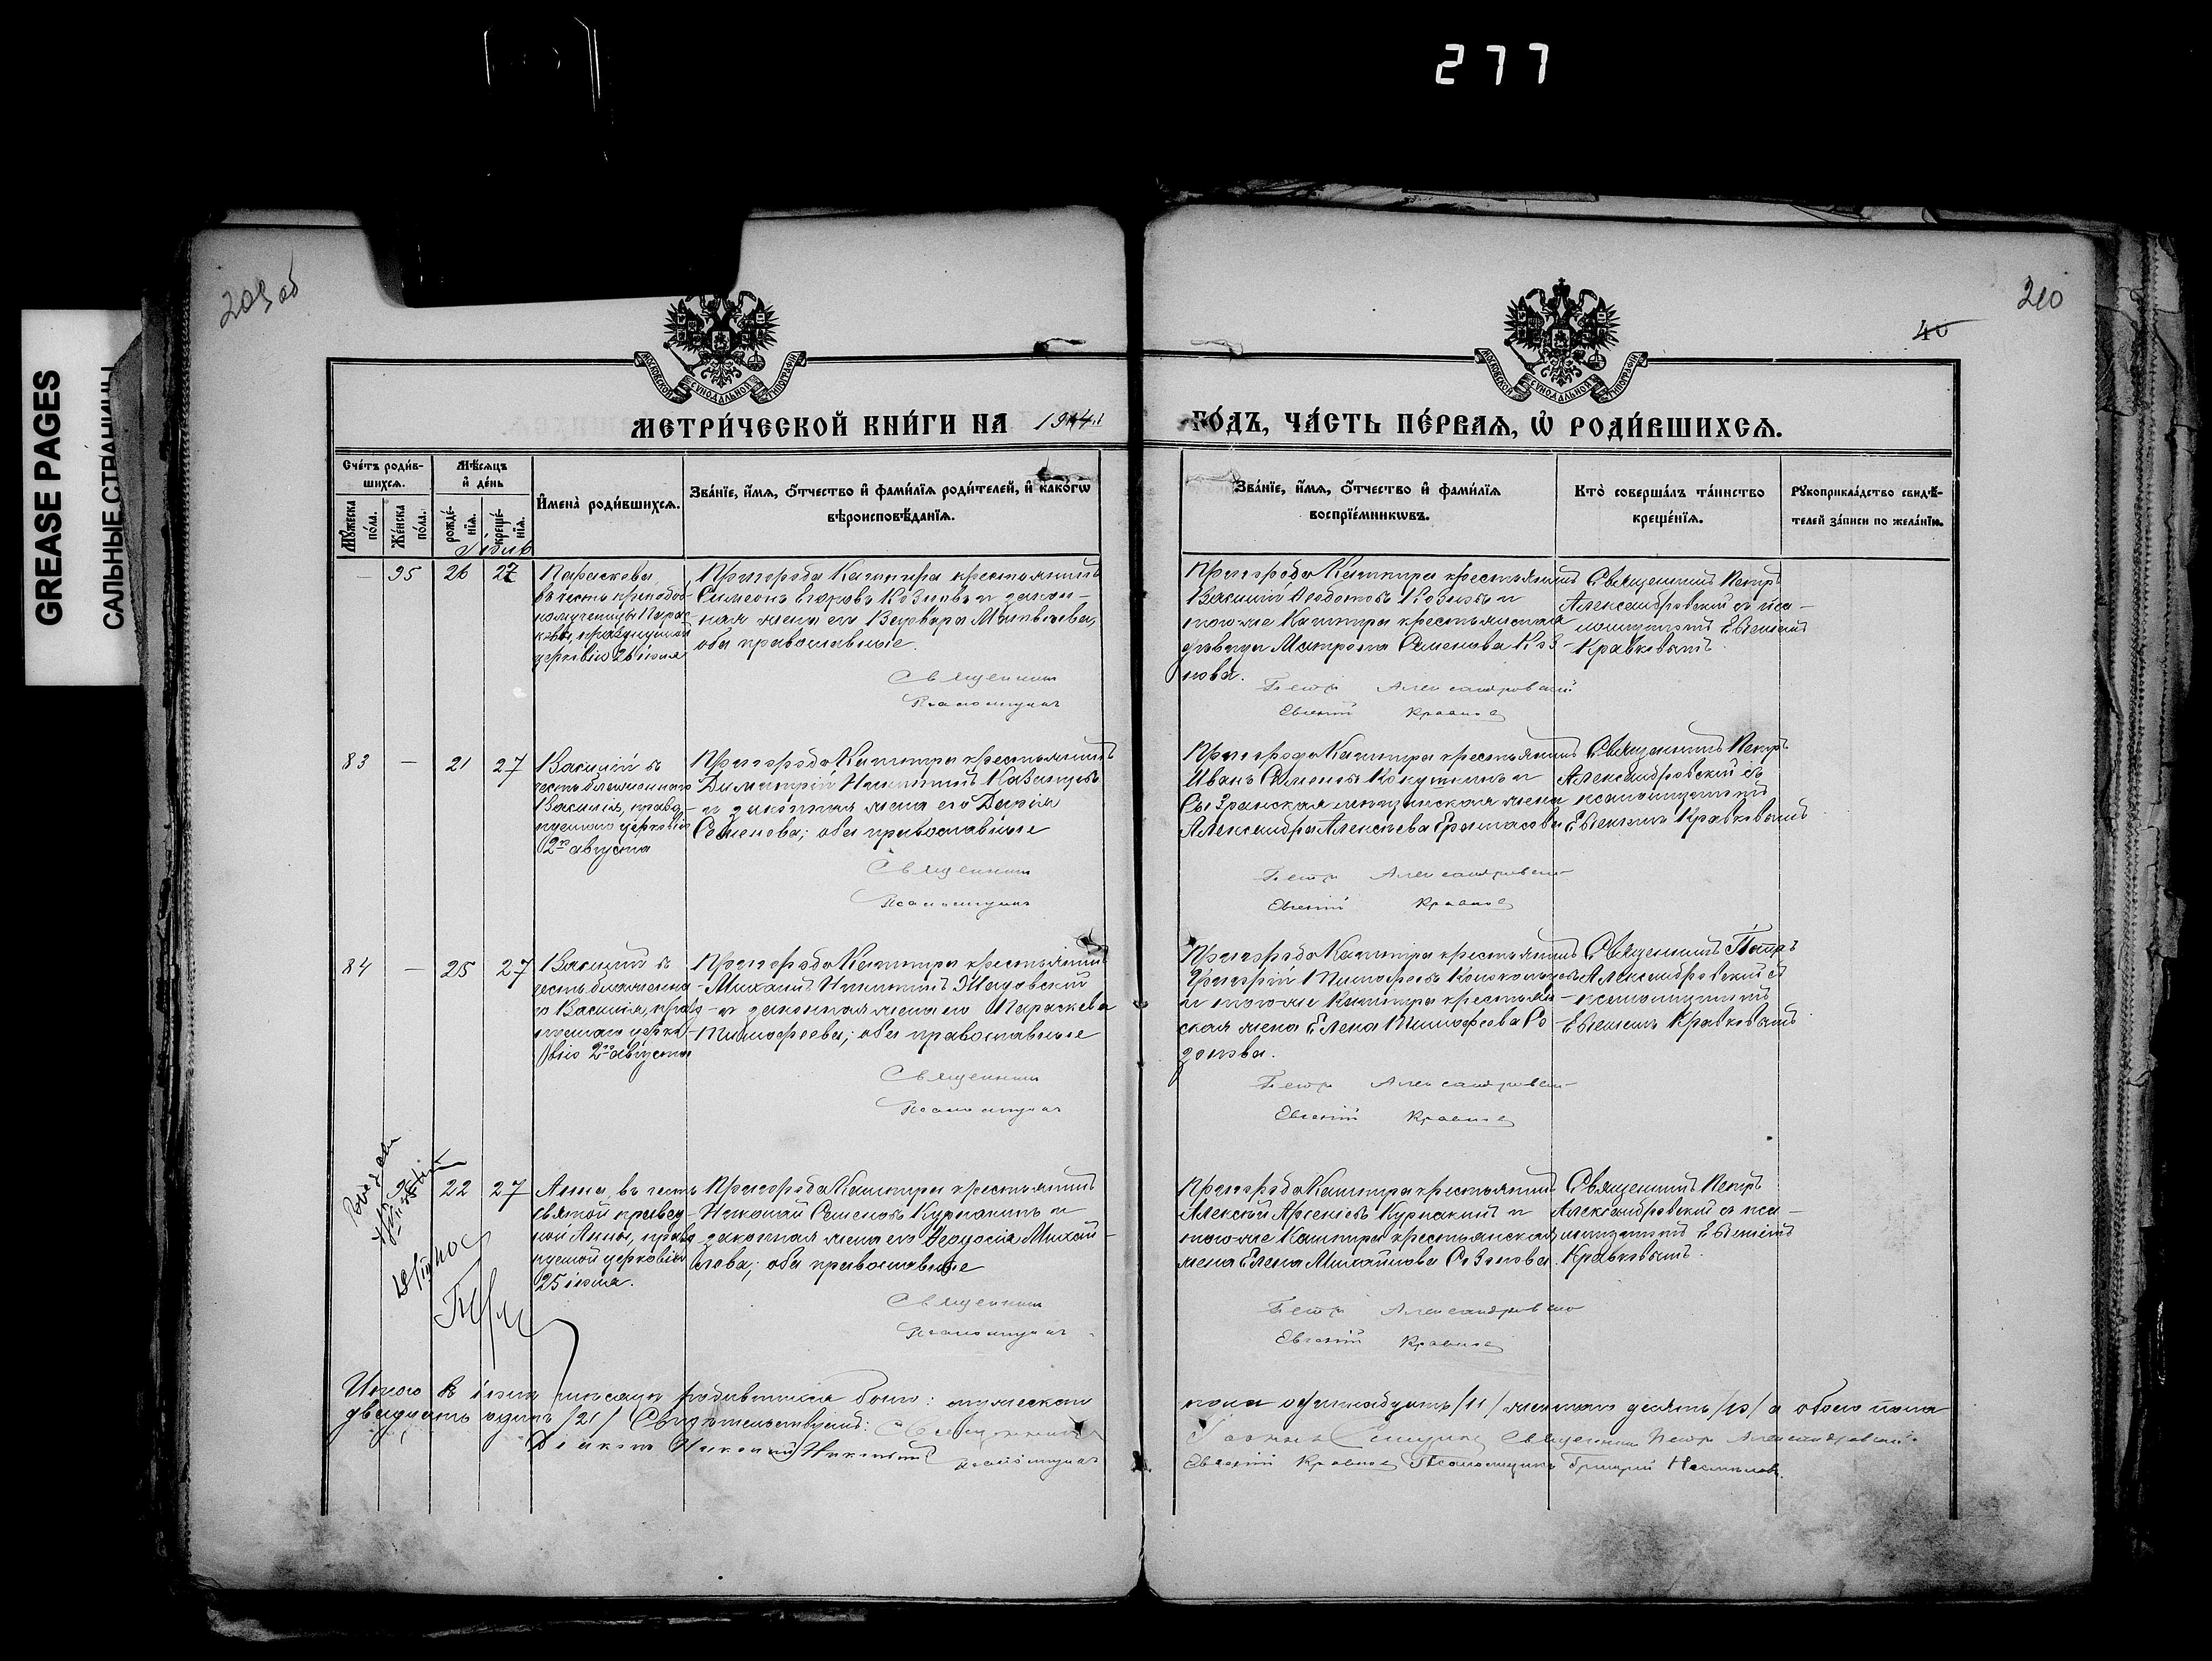 277
GREASE PAGES
САЛЬНЫЕ СТРАНИЦЫ
209 об
210
40
МЕТРИ́ЧЕСКОЙ КНИ́ГИ НА 1914
ГО́ДЪ, ЧА́СТЬ ПЕ́РВАѦ, Ѡ РОДИ́ВШИХСѦ.
Сче́тъ роди́в-
шихсѧ.
Мѣсѧцъ
и҆ де́нь
Мꙋ́жеска
по́ла.
Же́нска
по́ла.
рожде́-
нїѧ.
креще́-
нїѧ.
И҆мена̀ роди́вшихсѧ.
Зва́нїе, и҆́мѧ, ѻ҆́тчество и҆ фами́лїѧ роди́телей, и҆ како́гѡ
вѣроисповѣ́данїѧ.
Зва́нїе, и҆́мѧ, ѻ҆́тчество и҆ фами́лїѧ
воспрїе́мникѡвъ.
Кто̀ соверша́лъ та́инство
креще́нїѧ.
Рꙋкоприкла́дство свидѣ́-
телей за́писи по жела́нїю.
— 95 26 27
Параскева,
въ честь преподоб-
номученицы Парас-
кевы, празднуемой
церковію 26 іюля
Пригорода Кашпира крестьянинъ
Симеонъ Егоровъ Козновъ и закон-
ная жена его Варвара Матвѣева,
оба православные.
Священникъ
Псаломщикъ
Пригорода Кашпира крестьянинъ
Василій Ѳедотовъ Козновъ и
того-же Кашпира крестьянская
дѣвица Матрона Семенова Коз-
нова.
Петръ Александровскій
Евгеній Кравковъ
Священникъ Петръ
Александровскій съ пса-
ломщикомъ Евгеніемъ
Кравковымъ
83 — 21 27
Василій въ
честь блаженнаго
Василія, праздн-
уемаго церковію
2го августа
Пригорода Кашпира крестьянинъ
Димитрій Никитинъ Казанцевъ
и законная жена его Дарія
Семенова; оба православные
Священникъ
Псаломщикъ
Пригорода Кашпира крестьянинъ
Иванъ Семеновъ Кокуткинъ и
Сызранская мѣщанская жена
Александра Алексѣева Ермасова
Петръ Александровскій
Евгеній Кравковъ
Священникъ Петръ
Александровскій съ
псаломщикомъ
Евгеніемъ Кравковымъ
84 — 25 27
Василій въ
честь блаженна-
го Василія, празд-
нуемаго церко-
вію 2го августа
Пригорода Кашпира крестьянинъ
Михаилъ Никитинъ
и законная жена его Параскева
Тимофеева; оба православные
Священникъ
Псаломщикъ
Пригорода Кашпира крестьянинъ
Григорій Тимофеевъ
и того-же Кашпира крестьян-
ская жена Елена Тимофеева Ро-
зонова.
Петръ Александровскій
Евгеній Кравковъ
Священникъ Петръ
Александровскій съ
псаломщикомъ
Евгеніемъ Кравковымъ
22 27
Анна, въ честь
святой правед-
ной Анны, празд-
нуемой церковію
25 іюля.
Пригорода Кашпира крестьянинъ
Николай Семеновъ Курганинъ и
законная жена его Ѳеодосія Михай-
лова; оба православные
Священникъ
Псаломщикъ
Пригорода Кашпира крестьянинъ
Алексѣй Арсеніевъ и
того-же Кашпира крестьянская
жена Елена Михайлова Созонова
Петръ Александровскій
Евгеній Кравковъ
Священникъ Петръ
Александровскій съ пса-
ломщикомъ Евгеніемъ
Кравковымъ.
Итого въ іюлѣ мѣсяцѣ родившихся было: мужескаго
пола одиннадцать /11/ женскаго десять /10/ а обоего пола
двадцать одинъ /21/ Свидѣтельствуемъ: Священникъ
Священникъ Петръ Александровскій
Діаконъ Николай Никитинъ Псаломщикъ
Евгеній Кравковъ Псаломщикъ Григорій